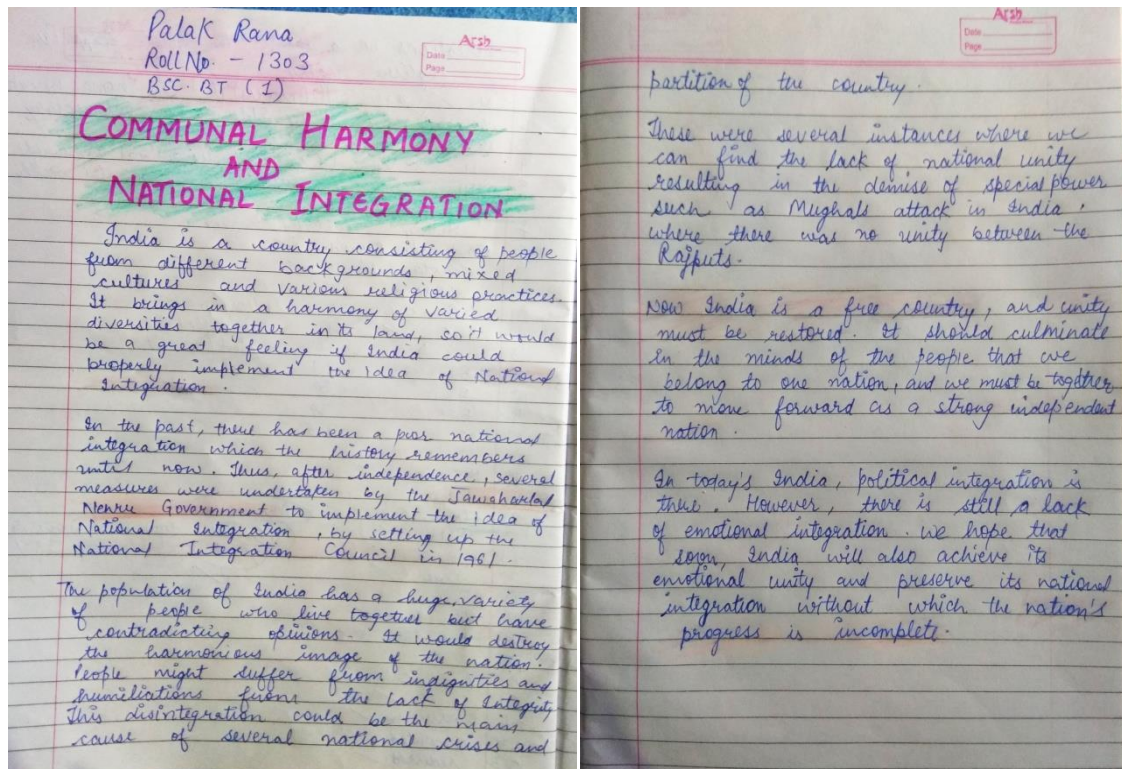 Palak Rana
Roll No. - 1303
BSC. BT (1)
Arsh
Date
Page
COMMUNAL HARMONY
AND
NATIONAL INTEGRATION
India is a country consisting of people
from different backgrounds, mixed
cultures and various religious practices.
It brings in a harmony of varied
diversities together in its land, so it would
be a great feeling if India could
properly implement the idea of National
Integration.
In the past, there has been a poor national
integration which the history remembers
until now. Thus, after independence, several
measures were undertaken by the Jawaharlal
Nehru Government to implement the idea of
National Integration, by setting up the
National Integration Council in 1961.
The population of India has a huge variety
of people who live together but have
contradicting opinions. It would destroy
the harmonious image of the nation.
People might suffer from indignities and
humiliations from the lack of Integrity
This disintegration could be the main
cause of several national crises and
Arsh
Date
Page
partition of the country.
These were several instances where we
can find the lack of national unity
resulting in the demise of special power
such as Mughals attack in India,
where there was no unity between the
Rajputs.
Now India is a free country, and unity
must be restored. It should culminate
in the minds of the people that we
belong to one nation, and we must be together
to move forward as a strong independent
nation.
In today's India, political integration is
true. However, there is still a lack
of emotional integration. we hope that
soon, India will also achieve its
emotional unity and preserve its national
integration without which the nation's
progress is incomplete.